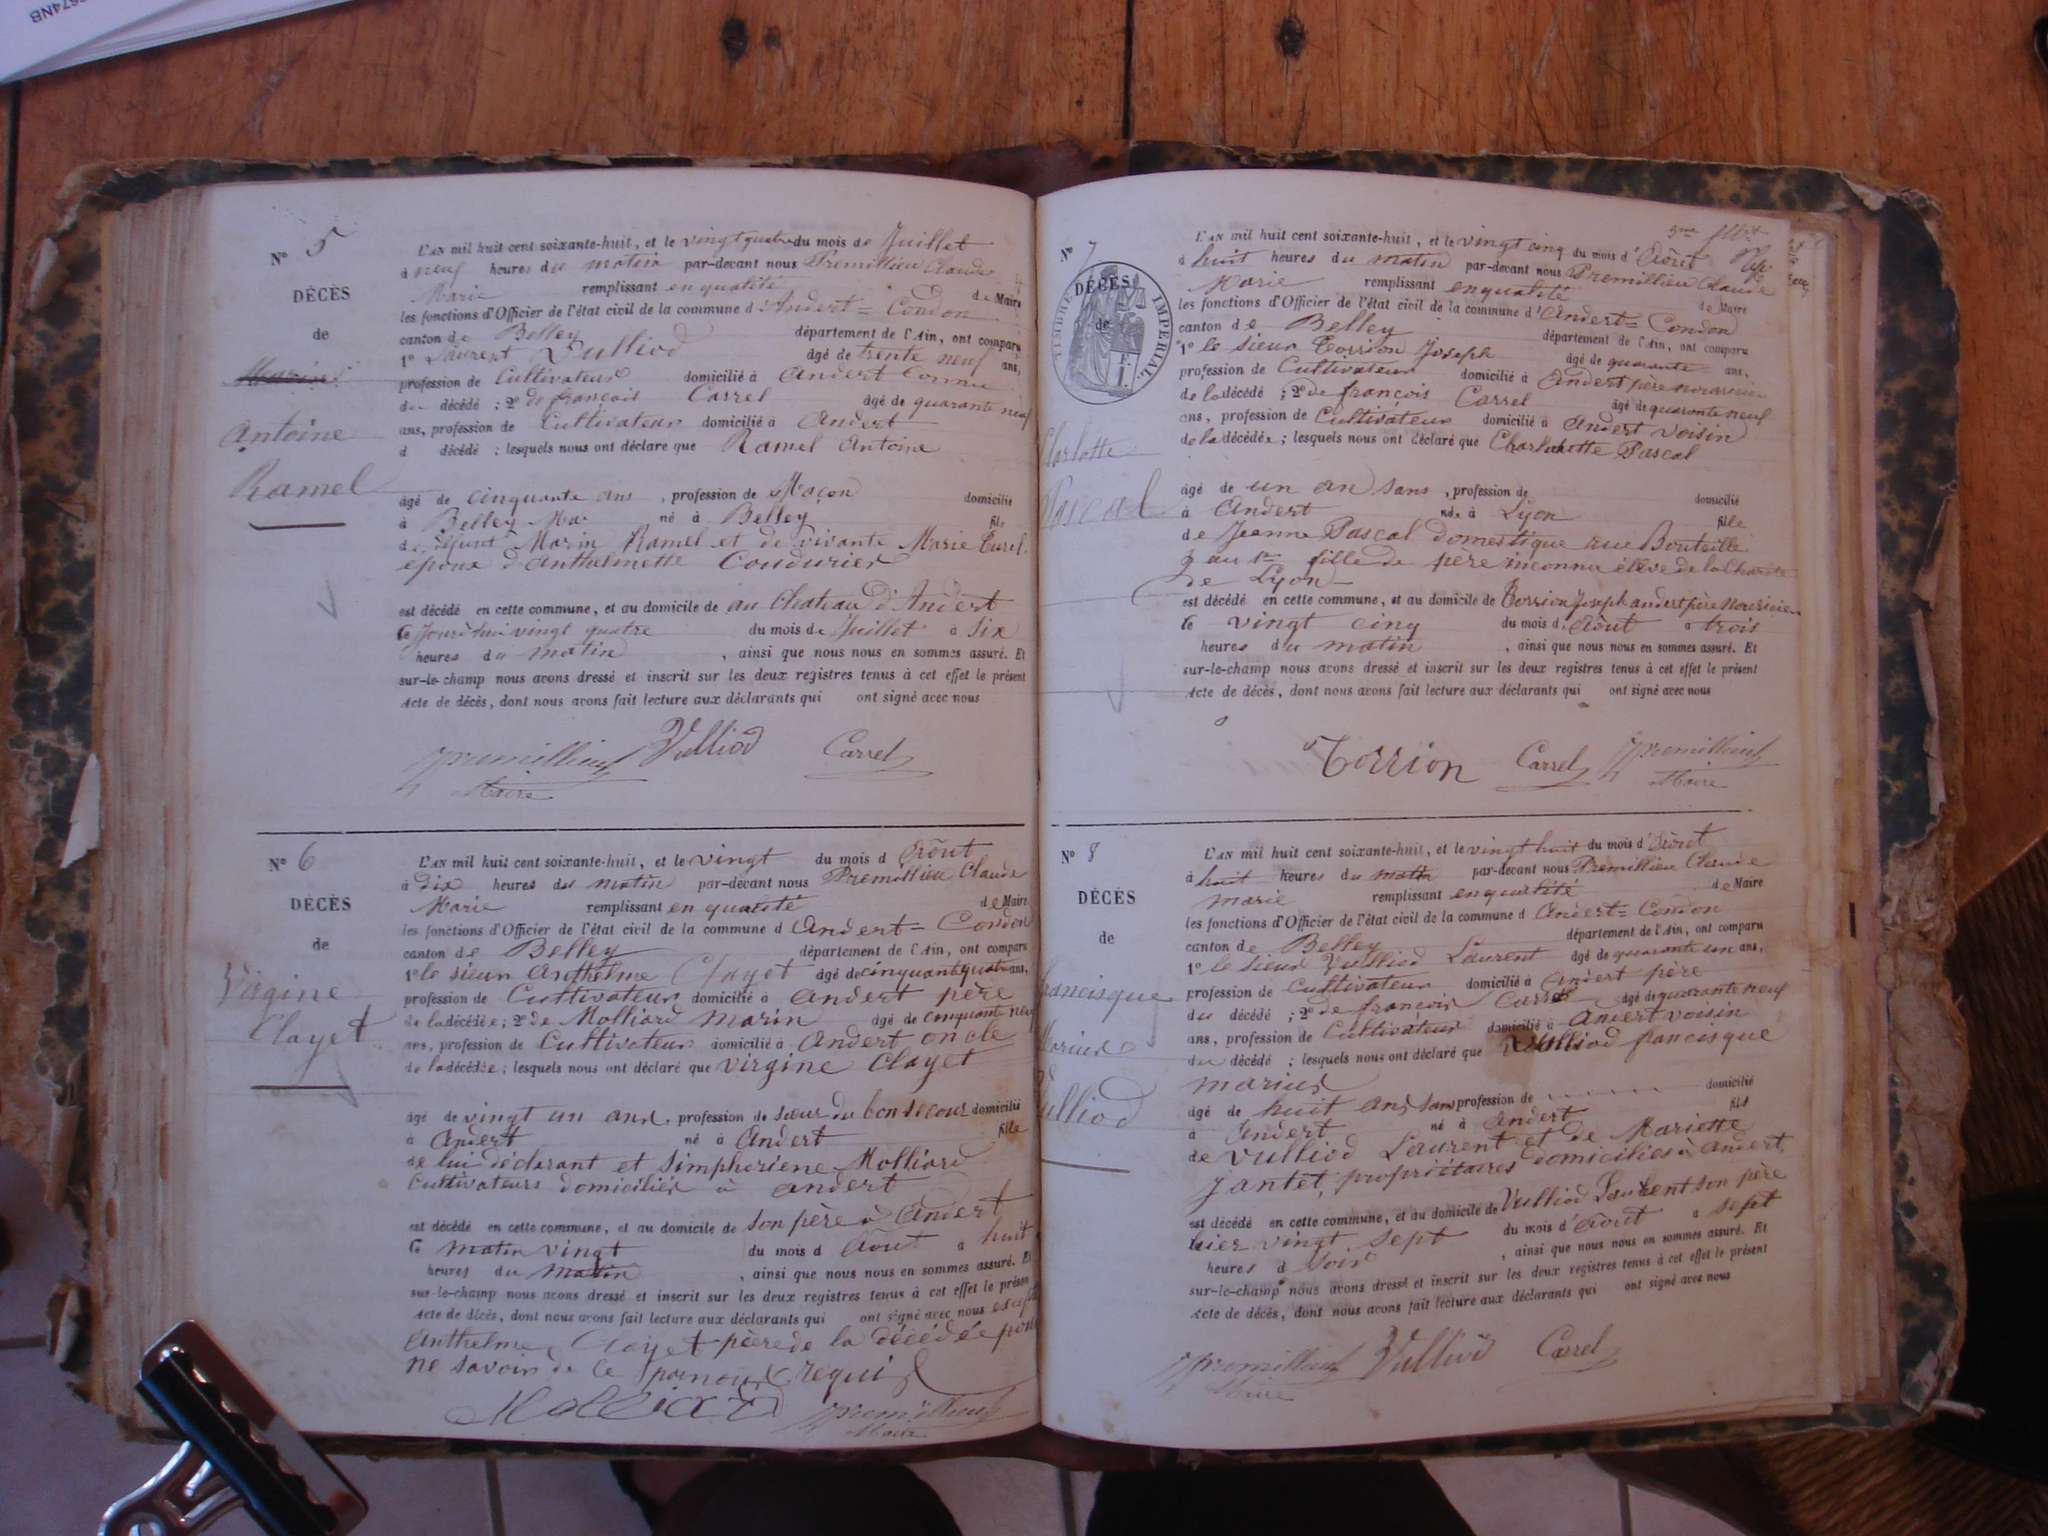 674NB
N° 5
DÉCÈS
de
Antoine
Ramel
L'AN mil huit cent soixante-huit, et le vingt quatre du mois de Juillet
à neuf heures du matin par-devant nous Premillieu Claude
Marie remplissant en qualité de Maire
les fonctions d'Officier de l'état civil de la commune d'Andert = Condon
canton de Belley département de l'Ain, ont comparu
1° Laurent Vulliod âgé de trente neuf ans,
profession de Cultivateur domicilié à Andert
du décédé ; 2° de françois Carrel âgé de quarante neuf
ans, profession de Cultivateur domicilié à Andert
d décédé ; lesquels nous ont déclaré que Ramel Antoine
âgé de cinquante ans , profession de Maçon domicilié
à Belley né à Belley fils
de défunt Marin Ramel et de vivante Marie Turel
epoux d'anthelmette Coudurier
est décédé en cette commune, et au domicile de au Chateau d'Andert
le jourd'hui vingt quatre du mois de Juillet à Six
heures du matin , ainsi que nous nous en sommes assuré. Et
sur-le-champ nous avons dressé et inscrit sur les deux registres tenus à cet effet le présent
Acte de décès, dont nous avons fait lecture aux déclarants qui ont signé avec nous
Premillieu Vulliod Carrel
Maire
N° 6
DÉCÈS
de
Virgine
Clayet
L'AN mil huit cent soixante-huit, et le vingt du mois d Août
à dix heures du matin par-devant nous Premillieu Claude
Marie remplissant en qualité de Maire
les fonctions d'Officier de l'état civil de la commune d Andert = Condon
canton de Belley département de l'Ain, ont comparu
1° le sieur Anthelme Clayet âgé de cinquante quatre ans,
profession de Cultivateur domicilié à Andert père
de la décédée ; 2° de Molliard Marin âgé de cinquante neuf
ans, profession de Cultivateur domicilié à Andert oncle
de la décédée ; lesquels nous ont déclaré que virgine Clayet
âgé de vingt un ans , profession de sœur du bon secour domicilié
à Andert né à Andert fille
de lui déclarant et Simphoriene Molliard
Cultivateurs domiciliés à Andert
est décédé en cette commune, et au domicile de son père à Andert
le matin vingt du mois d Août à huit
heures du matin , ainsi que nous nous en sommes assuré. Et
sur-le-champ nous avons dressé et inscrit sur les deux registres tenus à cet effet le présent
Acte de décès, dont nous avons fait lecture aux déclarants qui ont signé avec nous
Anthelme Clayet père de la décédée pour
ne savoir de ce par nous requis
Molliard Premillieu
Maire
N° 7
DÉCÈS
de
TIMBRE IMPERIAL
F.
1.
Charlotte
Pascal
L'AN mil huit cent soixante-huit, et le vingt cinq du mois d'Août
à huit heures du matin par-devant nous Premillieu Claude
Marie remplissant en qualité de Maire
les fonctions d'Officier de l'état civil de la commune d'Andert = Condon
canton de Belley département de l'Ain, ont comparu
1° le sieur Torrion Joseph âgé de quarante ans,
profession de Cultivateur domicilié à Andert père nourricier
de la décédé ; 2° de françois Carrel âgé de quarante neuf
ans, profession de Cultivateur domicilié à Andert voisin
de la décédée ; lesquels nous ont déclaré que Charlotte Pascal
âgé de un an sans , profession de domicilié
à Andert née à Lyon fille
de Jeanne Pascal domestique rue Bouteille
fille de père inconnu élève de la Charité
de Lyon
est décédé en cette commune, et au domicile de Torrion Joseph andert père Nourricier
le vingt cinq du mois d Août à trois
heures du matin , ainsi que nous nous en sommes assuré. Et
sur-le-champ nous avons dressé et inscrit sur les deux registres tenus à cet effet le présent
Acte de décès, dont nous avons fait lecture aux déclarants qui ont signé avec nous
Torrion Carrel Premillieu
Maire
N° 8
DÉCÈS
de
francisque
Marius
Vulliod
L'AN mil huit cent soixante-huit, et le vingt huit du mois d'Août
à huit heures du matin par-devant nous Premillieu Claude
marie remplissant en qualité de Maire
les fonctions d'Officier de l'état civil de la commune d Andert = Condon
canton de Belley département de l'Ain, ont comparu
1° le sieur Vulliod Laurent âgé de quarante un ans,
profession de Cultivateur domicilié à Andert père
du décédé ; 2° de françois Carrel âgé de quarante neuf
ans, profession de Cultivateur domicilié à Andert voisin
du décédé ; lesquels nous ont déclaré que Vulliod francisque
marius
âgé de huit ans sans profession de domicilié
à Andert né à Andert fils
de Vulliod Laurent et de Mariette
Jantet, propriétaires domiciliés à Andert,
est décédé en cette commune, et au domicile de Vulliod Laurent son père
hier vingt sept du mois d'Août à sept
heures d soir , ainsi que nous nous en sommes assuré. Et
sur-le-champ nous avons dressé et inscrit sur les deux registres tenus à cet effet le présent
Acte de décès, dont nous avons fait lecture aux déclarants qui ont signé avec nous
Premillieu Vulliod Carrel
Maire